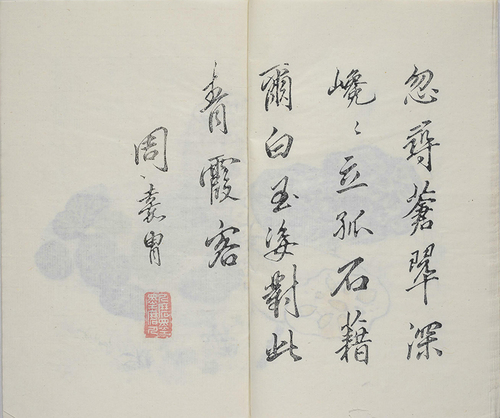 忽尋蒼翠深
巉〻立孤石藉
爾白玉姿對此
青霞客
周嘉胄